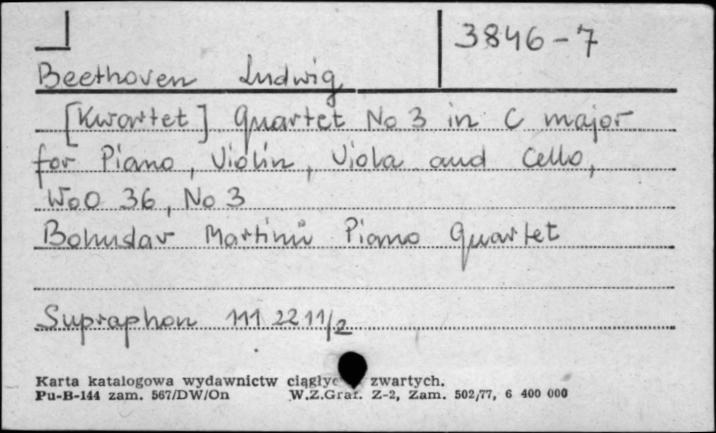 3846-7
Beethoven Ludwig
[Kwartet] Quartet No 3 in C major
for Piano, Violin, Viola and Cello,
WoO 36, No 3
Bohuslav Martinů Piano Quartet
Supraphon 111 2211/2
Karta katalogowa wydawnictw zwartych.
Pu-B-144 zam. 567/DW/On W.Z.Graf. Z-2, Zam. 502/77, 6 400 000